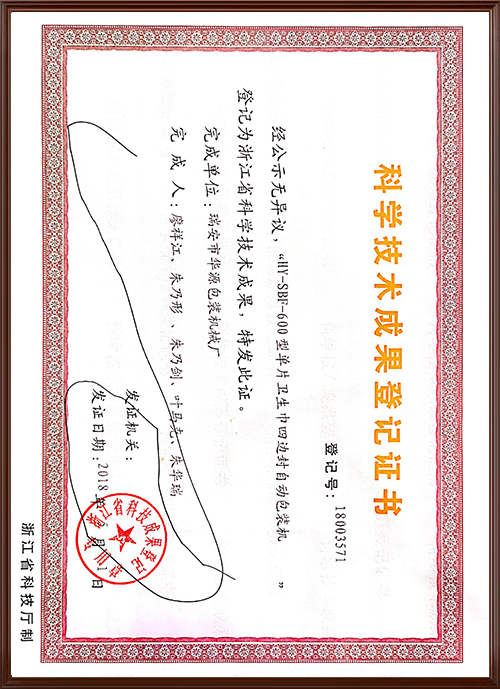 科学技术成果登记证书
登记号：18003571
经公示无异议，“HY-SBF-600型单片卫生巾四边封自动包装机”
登记为浙江省科学技术成果，特发此证。
完成单位：瑞安市华源包装机械厂
完成人：廖祥江、朱乃彤、朱乃剑、叶马克、朱华瑞
发证机关：
发证日期：2018年 月 1日
浙江省科技成果登记
浙江省科技厅制